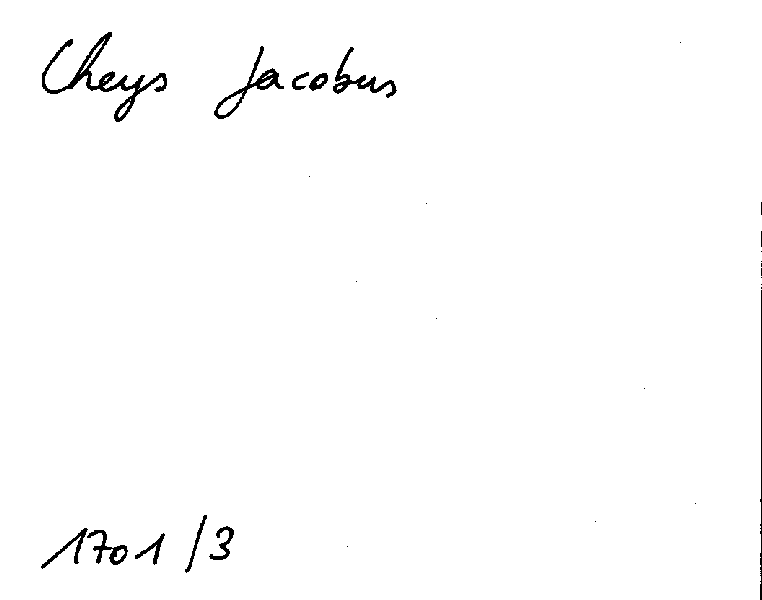 Cheys Jacobus
1701/3